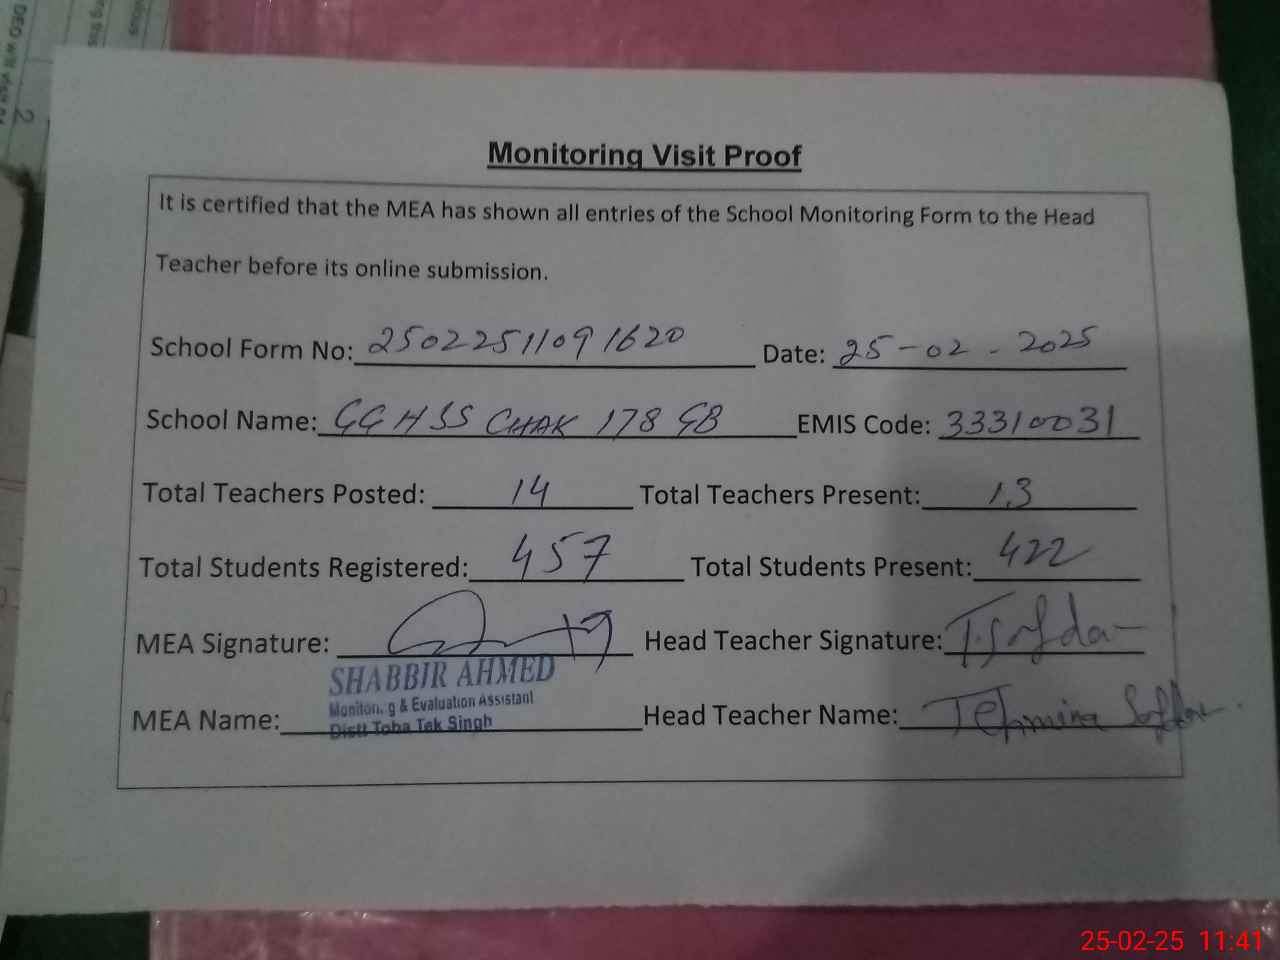 Monitoring Visit Proof
It is certified that the MEA has shown all entries of the School Monitoring Form to the Head
Teacher before its online submission.
School Form No: 2502251109 1620 Date: 25-02-2025
School Name: GGHSS CHAK 178 GB EMIS Code: 33310031
Total Teachers Posted: 14 Total Teachers Present: 13
Total Students Registered: 457 Total Students Present: 422
MEA Signature: Head Teacher Signature: T.Safdar
SHABBIR AHMED
Monitoring & Evaluation Assistant
MEA Name: Head Teacher Name: Tehmina Safdar
Distt Toba Tek Singh
25-02-25 11:41